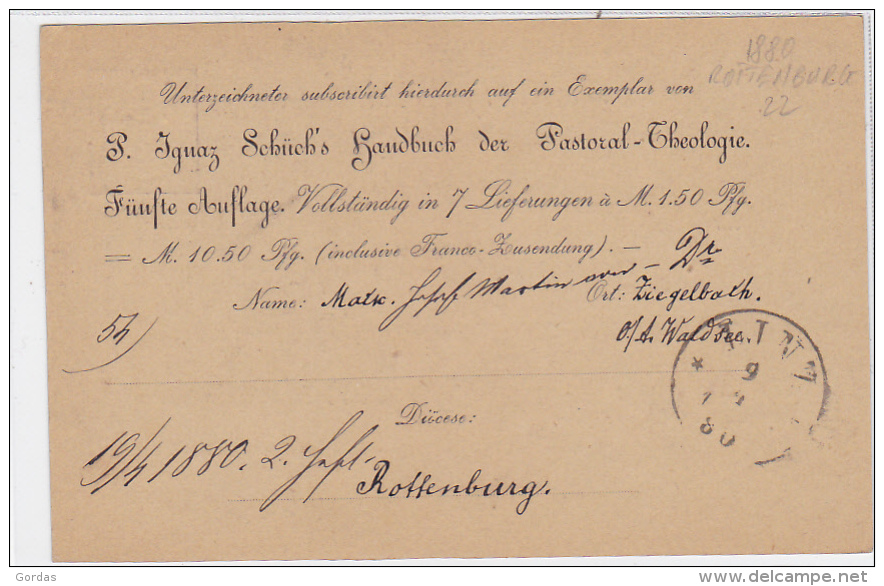 1880
ROTTENBURG
22
Unterzeichneter subscribirt hierdurch auf ein Exemplar von
P. Ignaz Schüch's Handbuch der Pastoral-Theologie.
Fünfte Auflage. Vollständig in 7 Lieferungen à M. 1.50 Pfg.
= M. 10.50 Pfg. (inclusive Franco-Zusendung). —
Name: Martin Ort: Ziegelbach.
54) o/A. Waldsee.
Diöcese:
19/4 1880. 2. Heft.
Rottenburg.
9
80
Gordas
www.delcampe.net